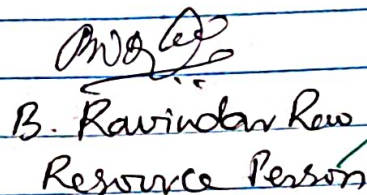 B. Ravindar Rao
Resource Person